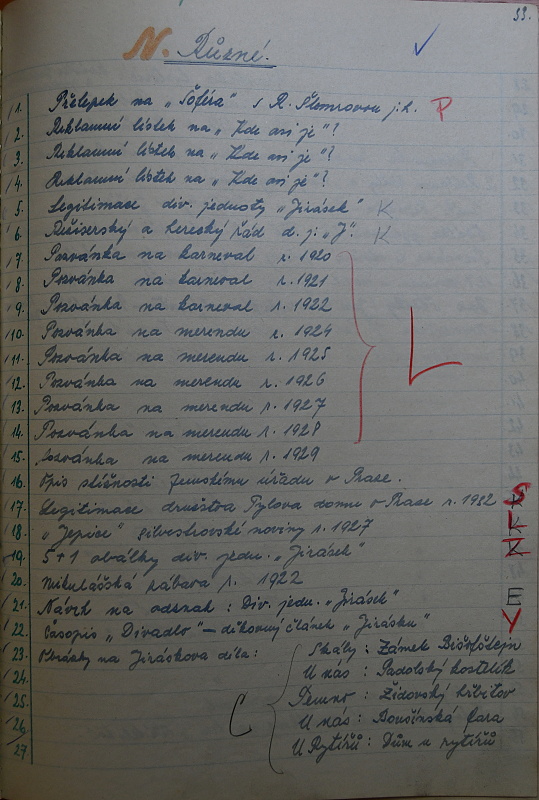 33.
N. Různé.
1. Přelepek na „Šoféra" s R. Šlemrovou j.h. P
2. Reklamní lístek na „Kde asi je"?
3. Reklamní lístek na „Kde asi je"?
4. Reklamní lístek na „Kde asi je"?
5. Legitimace div. jednoty „Jirásek" K
6. Režisérský a herecký řád d. j. „J." K
7. Pozvánka na karneval r. 1920
8. Pozvánka na karneval r. 1921
9. Pozvánka na karneval r. 1922
10. Pozvánka na merendu r. 1924
11. Pozvánka na merendu r. 1925 L
12. Pozvánka na merendu r. 1926
13. Pozvánka na merendu r. 1927
14. Pozvánka na merendu r. 1928
15. Pozvánka na merendu r. 1929
16. Opis stížnosti zemskému úřadu v Praze.
17. Legitimace družstva Tylova domu v Praze r. 1932
18. „Jepice" silvestrovské noviny r. 1927
19. 5+1 obálky div. jedn. „Jirásek"
20. Mikulášská zábava r. 1922
21. Návrh na odznak: Div. jedn. „Jirásek" E
22. Časopis „Divadlo" – děkovný článek „Jirásku" Y
23. Obrázky na Jiráskova díla: Skály: Zámek Bišofštejn
24. U nás: Padolský kostelík
25. Temno: Židovský hřbitov
26. C U nás: Boušínská fara
27 U Rytířů: Dům u rytířů